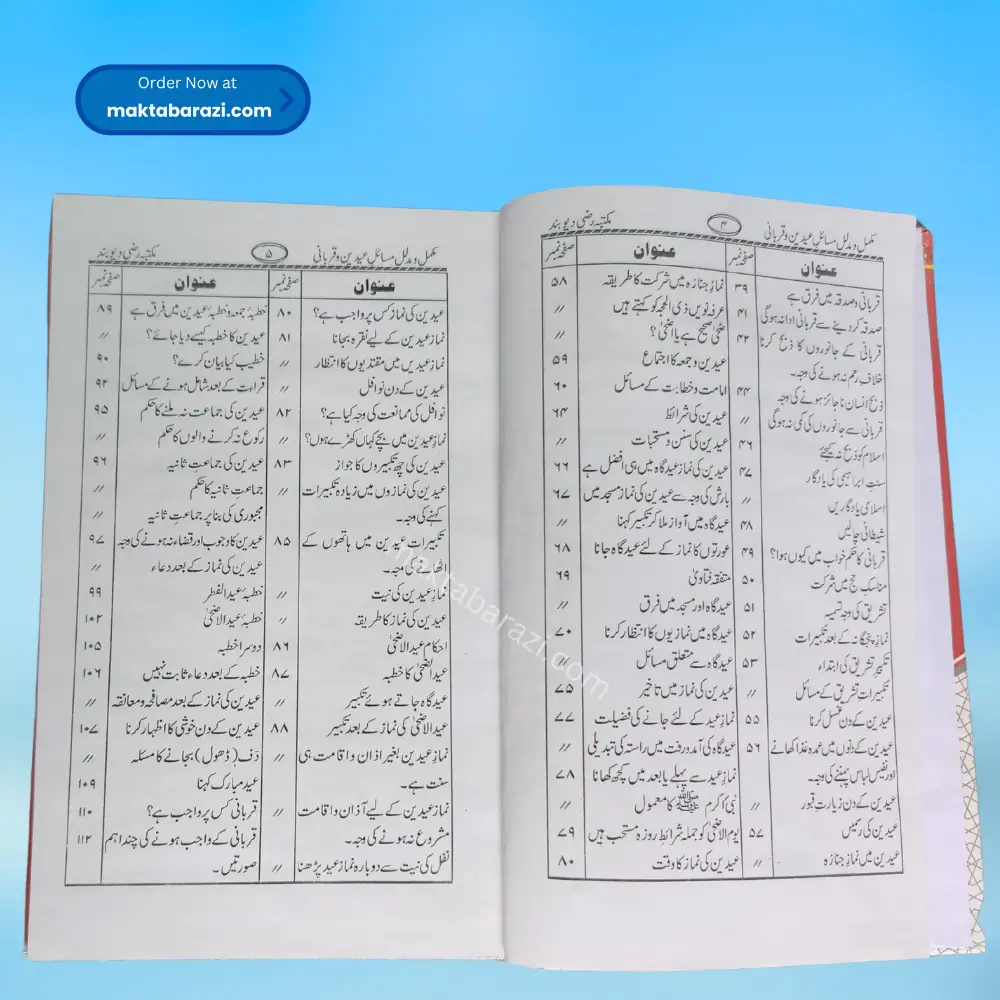 Order Now at
maktabarazi.com
مکمل ومدلل مسائل عیدین وقربانی
۴
مکتبہ رضی دیوبند
عنوان
صفحہ نمبر
قربانی وصدقہ میں فرق ہے ۳۹
صدقہ کردینے سے قربانی ادا نہ ہوگی ۴۱
قربانی کے جانوروں کا ذبح کرنا ۴۲
خلاف رحم نہ ہونے کی وجہ۔
ذبح انسان نا جائز ہونے کی وجہ ۴۴
قربانی سے جانوروں کی کمی نہ ہوگی 〃
اسلام کو ذبح نہ کیجئے ۴۶
سنت ابراہیمی کی یادگار ۴۷
اسلامی یادگاریں 〃
شیطانی چالیں ۴۸
قربانی کا حکم خواب میں کیوں ہوا؟ ۴۹
مناسک حج میں شرکت ۵۰
تشریق کی وجہ تسمیہ ۵۱
نماز پنجگانہ کے بعد تکبیرات ۵۲
تکبیر تشریق کی ابتداء ۵۳
تکبیرات تشریق کے مسائل 〃
عیدین کے دن غسل کرنا ۵۵
عیدین کے دنوں میں عمدہ غذا کھانے ۵۶
اور نفیس لباس پہننے کی وجہ۔
عیدین کے دن زیارت قبور 〃
عیدین کی رسمیں ۵۷
عیدین میں نماز جنازہ 〃
عنوان
صفحہ نمبر
نماز جنازہ میں شرکت کا طریقہ ۵۸
عرفہ نویں ذی الحجہ کو کہتے ہیں 〃
ضحٰی صحیح ہے یا اضحٰی؟ 〃
عیدین وجمعہ کا اجتماع ۵۹
امامت وخطابت کے مسائل ۶۰
عیدین کی شرائط ۶۴
عیدین کی سنن ومستحبات 〃
عیدین کی نماز عیدگاہ میں ہی افضل ہے ۶۶
بارش کی وجہ سے عیدین کی نماز مسجد میں ۶۷
عیدگاہ میں آواز ملا کر تکبیر کہنا 〃
عورتوں کا نماز کے لئے عیدگاہ جانا ۶۸
متفقہ فتاویٰ ۶۹
عیدگاہ اور مسجد میں فرق 〃
عیدگاہ میں نمازیوں کا انتظار کرنا ۷۰
عیدگاہ سے متعلق مسائل 〃
عیدین کی نماز میں تاخیر ۷۵
نماز عید کے لئے جانے کی فضیلت ۷۷
عیدگاہ کی آمد ورفت میں راستہ کی تبدیلی 〃
نماز عید سے پہلے یا بعد میں کچھ کھانا ۷۸
نبی اکرم ﷺ کا معمول 〃
یوم الاضحیٰ کو جملہ شرائط روزہ مستحب ہیں ۷۹
عیدین کی نماز کا وقت ۸۰
مکمل ومدلل مسائل عیدین وقربانی
۵
مکتبہ رضی دیوبند
عنوان
صفحہ نمبر
عیدین کی نماز کس پر واجب ہے؟ ۸۰
نماز عیدین کے لیے نقرہ بجانا ۸۱
نماز عیدیں میں مقتدیوں کا انتظار 〃
عیدین کے دن نوافل 〃
نوافل کی ممانعت کی وجہ کیا ہے؟ ۸۲
نماز عیدین میں بچے کہاں کھڑے ہوں؟ 〃
عیدین کی چھ تکبیروں کا جواز ۸۳
عیدین کی نمازوں میں زیادہ تکبیرات 〃
کہنے کی وجہ۔
تکبیرات عیدین میں ہاتھوں کے ۸۵
اٹھانے کی وجہ۔
نماز عیدین کی نیت 〃
عیدین کی نماز کا طریقہ 〃
احکام عید الاضحیٰ ۸۶
عید الضحیٰ کا خطبہ ۸۷
عیدگاہ جاتے ہوئے تکبیر 〃
عید الاضحیٰ کی نماز کے بعد تکبیر ۸۸
نماز عیدین بغیر اذان واقامت ہی 〃
سنت ہے۔
نماز عیدین کے لیے آذان واقامت 〃
مشروع نہ ہونے کی وجہ۔
نفل کی نیت سے دوبارہ نماز عید پڑھنا 〃
عنوان
صفحہ نمبر
خطبہ جمعہ وخطبۂ عیدین میں فرق ہے ۸۹
عیدین کا خطبہ کیسے دیا جائے؟ 〃
خطیب کیا بیان کرے؟ ۹۰
قراءت کے بعد شامل ہونے کے مسائل ۹۲
عیدین کی جماعت نہ ملنے کا حکم ۹۵
رکوع نہ کرنے والوں کا حکم 〃
عیدین کی جماعت ثانیہ ۹۶
جماعت ثانیہ کا حکم 〃
مجبوری کی بنا پر جماعت ثانیہ 〃
عیدین کا وجوب اور قضاء نہ ہونے کی وجہ ۹۷
عیدین کی نماز کے بعد دعاء 〃
خطبۂ عید الفطر ۹۹
خطبۂ عید الاضحیٰ ۱۰۲
دوسرا خطبہ ۱۰۵
خطبہ کے بعد دعاء ثابت نہیں ۱۰۶
عیدین کی نماز کے بعد مصافحہ ومعانقہ 〃
عیدین کے دن خوشی کا اظہار کرنا ۱۰۷
دف (ڈھول) بجانے کا مسئلہ 〃
عید مبارک کہنا ۱۰۹
قربانی کس پر واجب ہے؟ ۱۱۰
قربانی کے واجب ہونے کی چند اہم ۱۱۲
صورتیں۔
maktabarazi.com